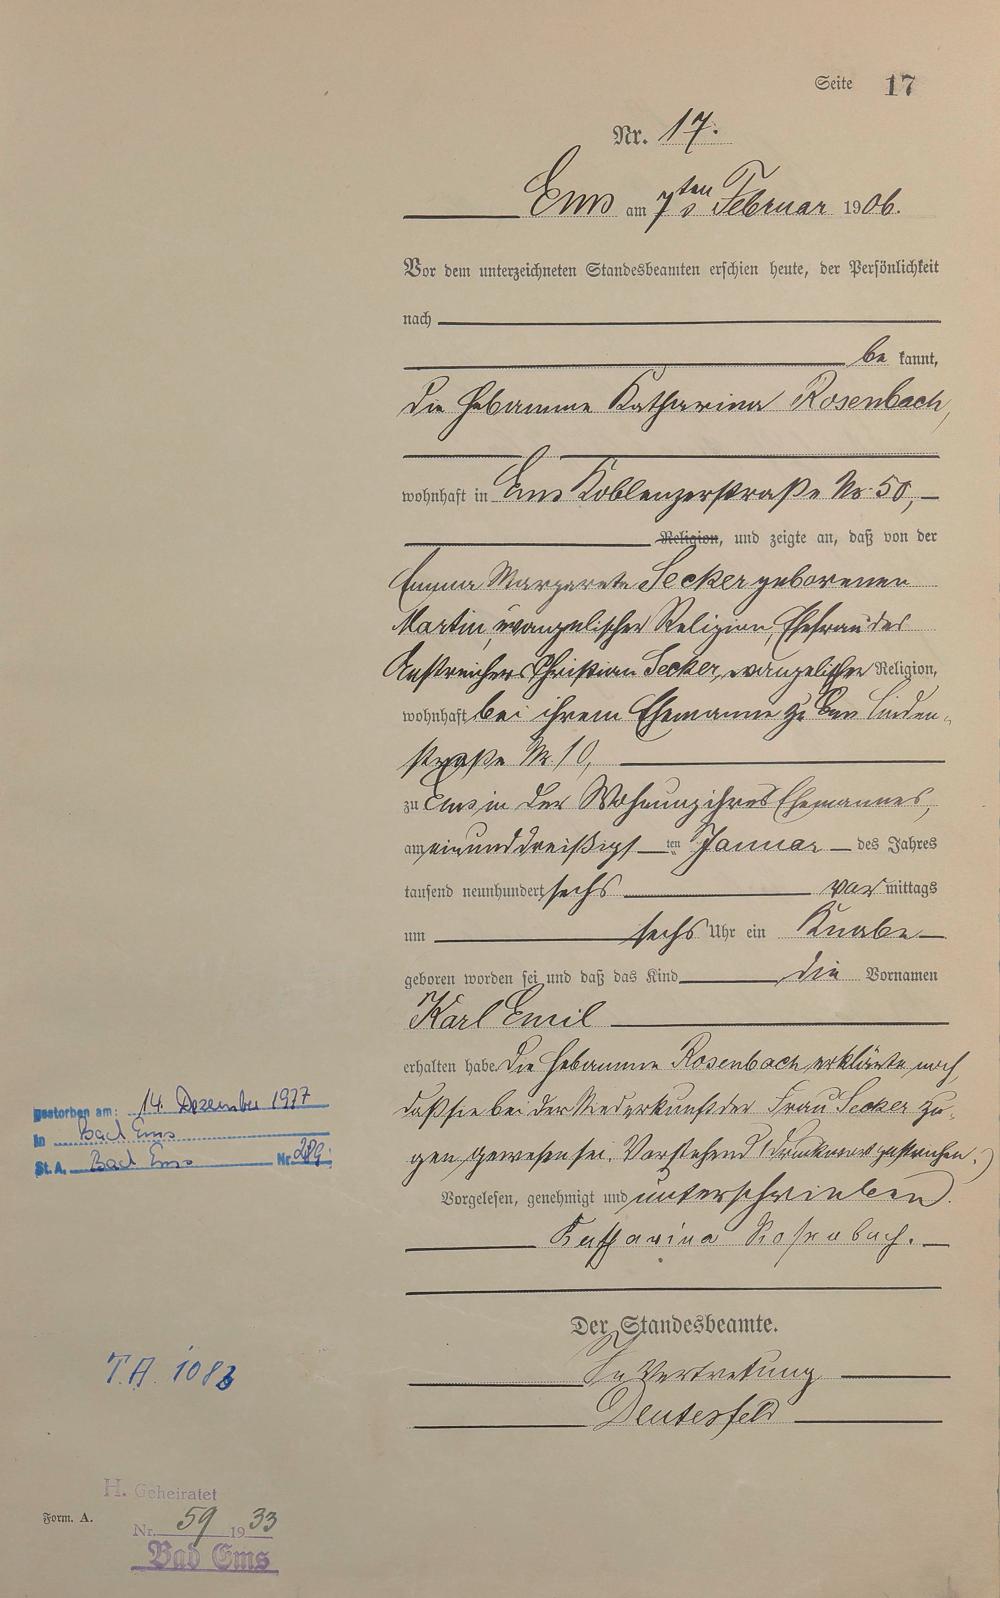 Seite 17
Nr. 17.
Ems am 7ten Februar 1906.
Vor dem unterzeichneten Standesbeamten erschien heute, der Persönlichkeit
nach
be kannt,
die Hebamme Katharina Rosenbach,
wohnhaft in Ems Koblenzerstraße Nr. 50,
Religion, und zeigte an, daß von der
Emma Margareta Secker geborenen
Martin, evangelischer Religion, Ehefrau des
Anstreichers Christian Secker, evangelischer Religion,
wohnhaft bei ihrem Ehemanne zu Ems Linden-
straße Nr. 10,
zu Ems in der Wohnung ihres Ehemannes,
am einunddreißigsten Januar des Jahres
tausend neunhundert sechs vor mittags
um sechs Uhr ein Knabe
geboren worden sei und daß das Kind die Vornamen
Karl Emil
erhalten habe. Die Hebamme Rosenbach erklärte noch,
daß sie bei der Niederkunft der Frau Secker zu-
gen gewesen sei. Vorstehend 1 Druckwort gestrichen.
Vorgelesen, genehmigt und unterschrieben.
Katharina Rosenbach.
Der Standesbeamte.
In Vertretung
gestorben am: 14. Dezember 1977
in Bad Ems
St. A. Bad Ems Nr. 289
T.A. 108
H. Geheiratet
Nr. 59 1933
Bad Ems
Form. A.